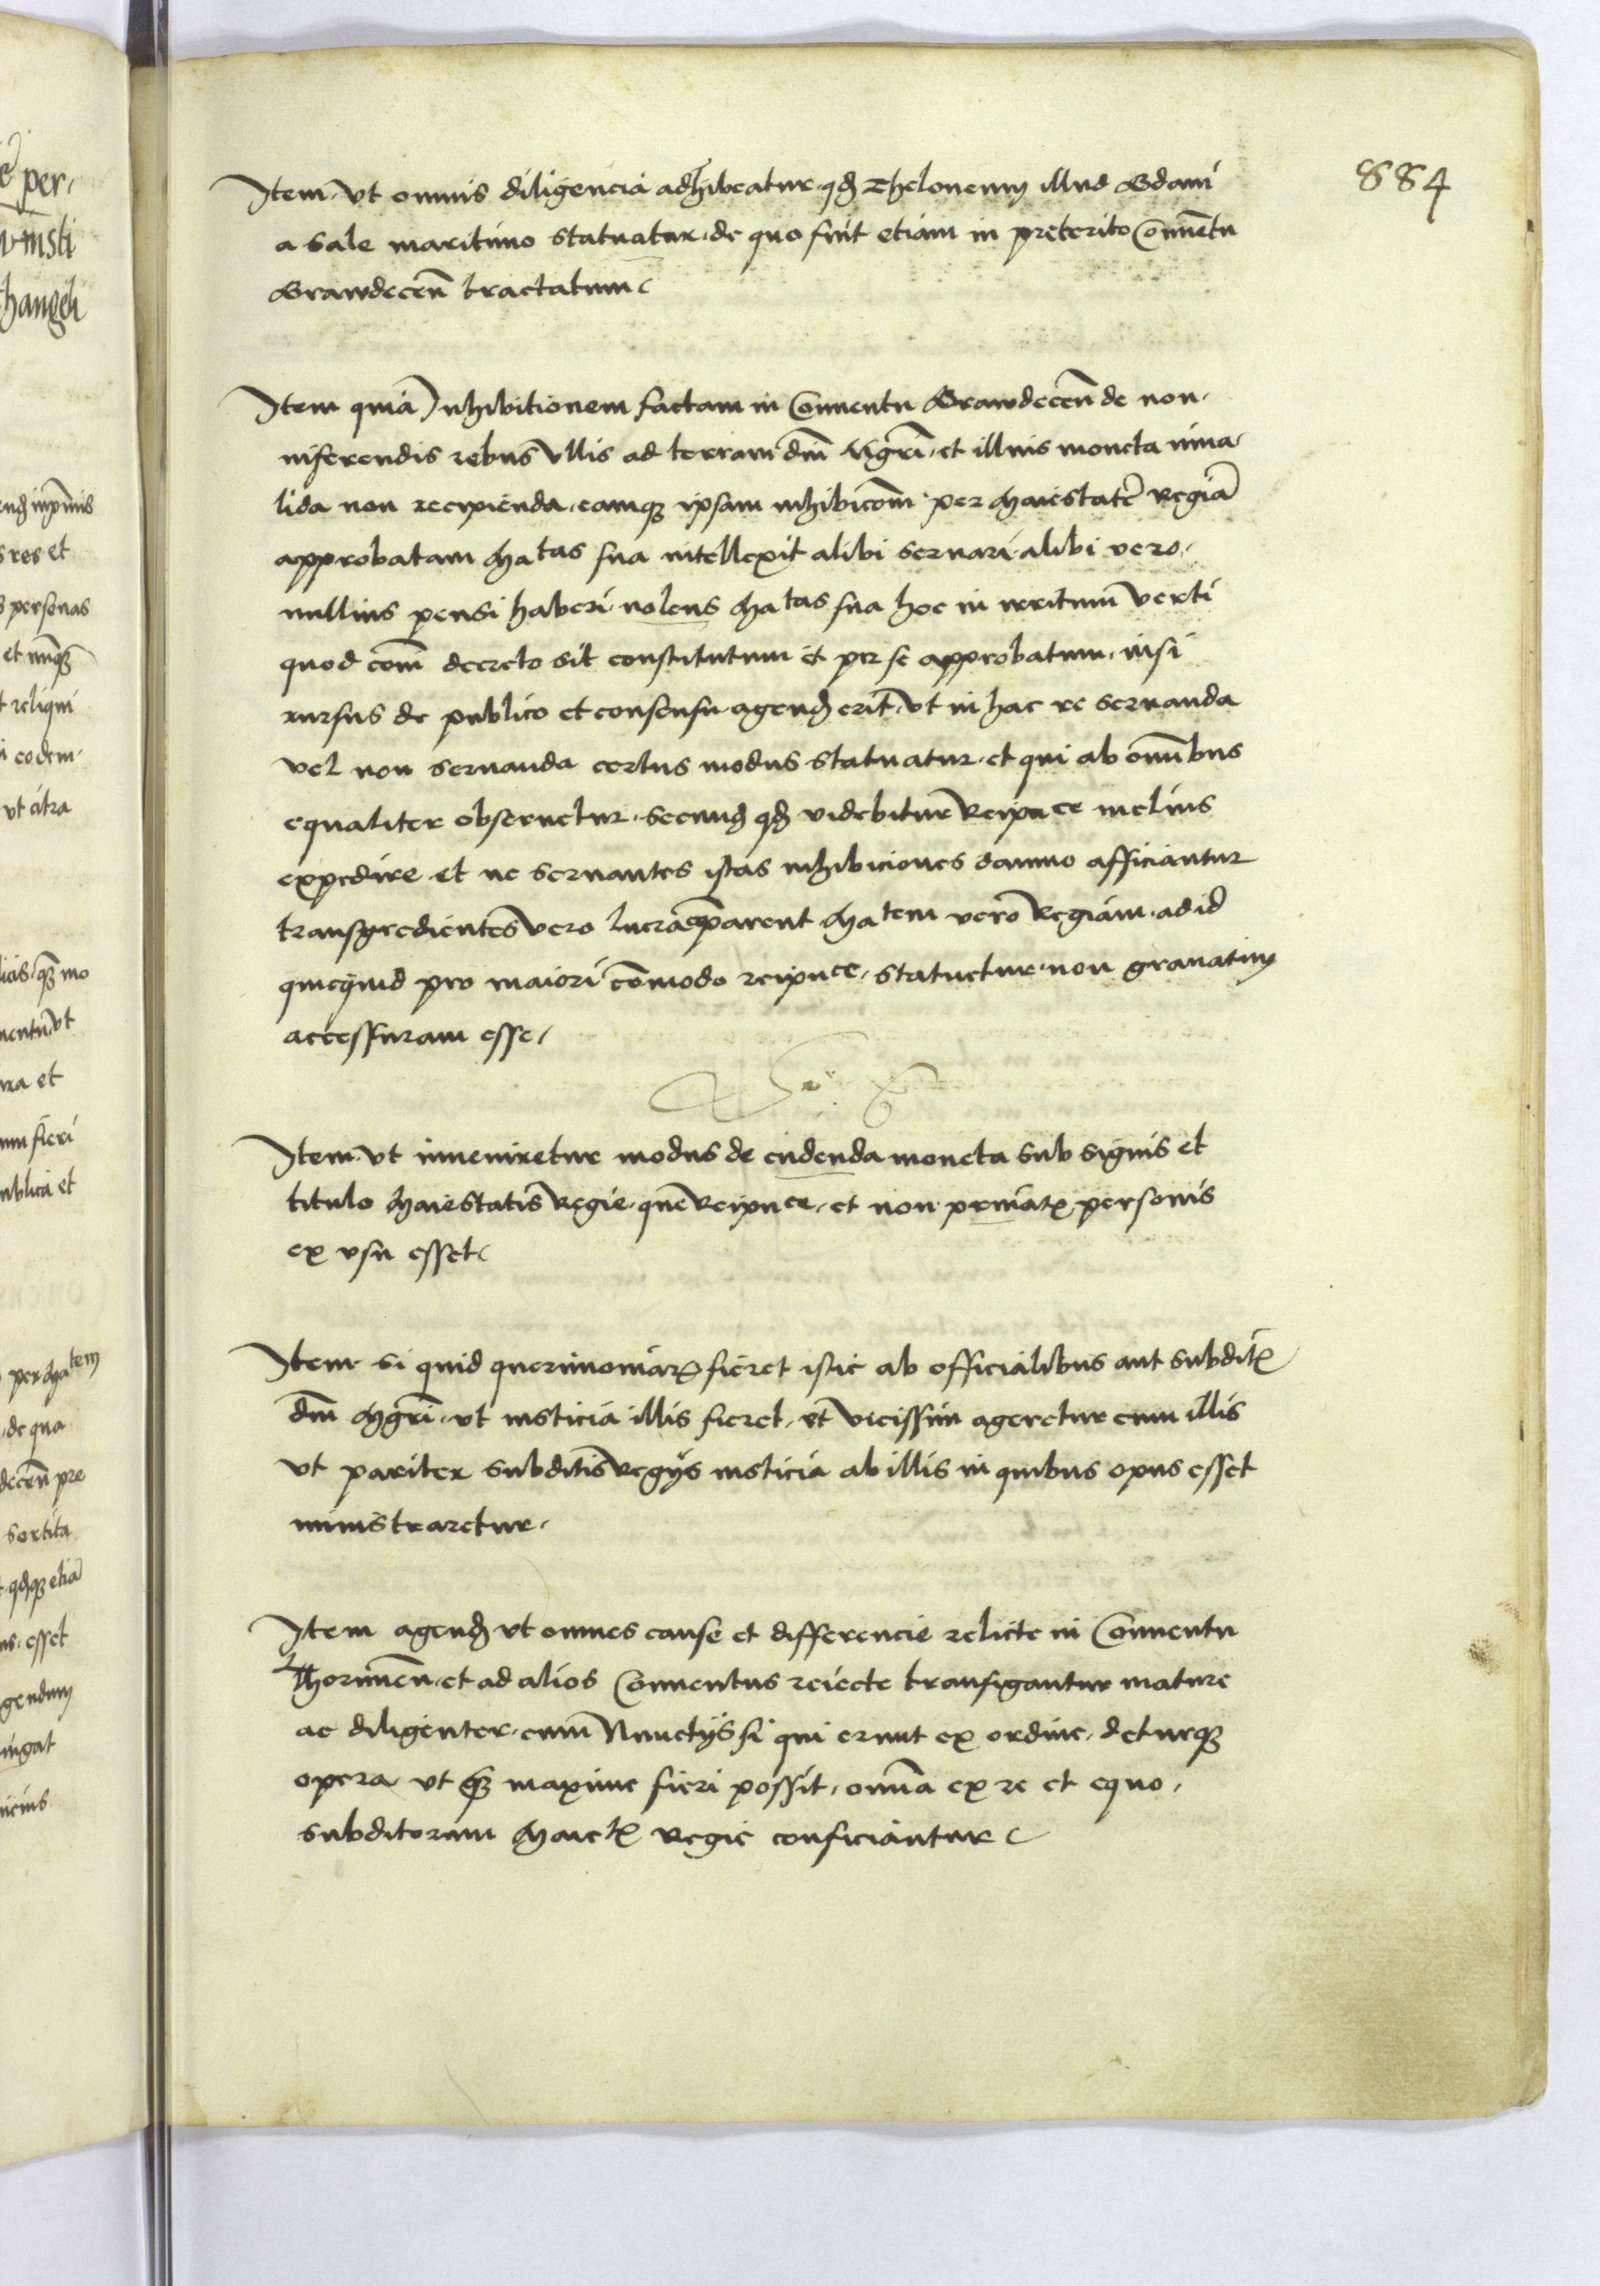 884
Item vt omnis diligencia adhibeatur qd Theloneum illud Gdani
a sale maritimo statuatur de quo fuit etiam in preterito Conuentu
Grawdecen tractatum
Item quia Inhibitionem factam in Conuentu Grawdecen de non
inferendis rebus vllis ad terram dni Mgri et illius moneta inua
lida non recipienda eamqz ipsam inhibicom per Maiestate Regia
approbatam Ma tas sua intellexit alibi seruari alibi vero
nullius pensi haberi nolens Ma tas sua hoc in irritum verti
quod com decreto sit constitutum et per se approbatum nisi
rursus de publico et consensu agend erit vt in hac re seruanda
vel non seruanda certus modus statuatur et qui ab omnibus
equaliter obseruetur secund qd videbitur Reipuce melius
expedire et ne seruantes istas inhibiciones damno afficiantur
transgredientes vero lucra comparent Ma tem vero Regiam ad id
quicquid pro maiori comodo reipuce statuetur non grauatim
accessuram esse
Item vt inueniretur modus de cudenda moneta sub signis et
titulo Maiestatis Regie que Reipuce et non priuatis personis
ex vsu esset
Item si quid querimoniar fieret istic ab officialibus aut subditis
dni Mgri vt iusticia illis fieret et vicissim ageretur cum illis
vt pariter subditis Regijs iusticia ab illis in quibus opus esset
ministraretur
Item agend vt omnes cause et differencie relicte in Conuentu
Thorunen et ad alios Conuentus reiecte transigantur mature
ac diligenter cum Nunctijs si qui erunt ex ordine deturqz
opera vt qz maxime fieri possit omnia ex re et equo
subditorum Maietis Regie conficiantur